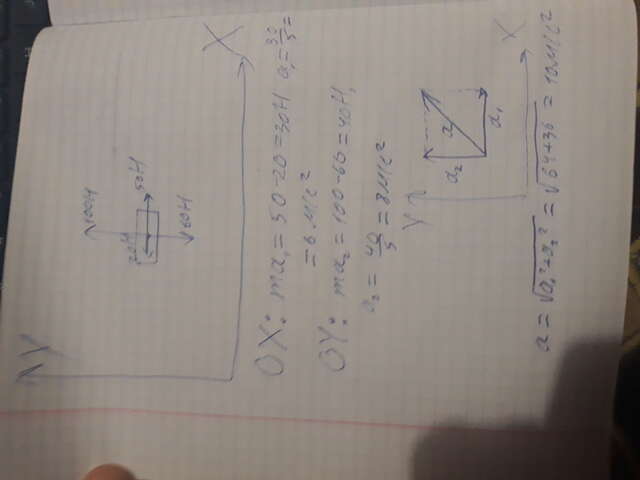 Y
X
100H
20H
50H
60H
OX: ma₁ = 50-20 = 30H a₁ = 30/5 =
= 6 м/с²
OY: ma₂ = 100-60 = 40H,
a₂ = 40/5 = 8 м/с²
Y
X
a₂
a
a₁
a = √a₁²+a₂² = √64+36 = 10 м/с²